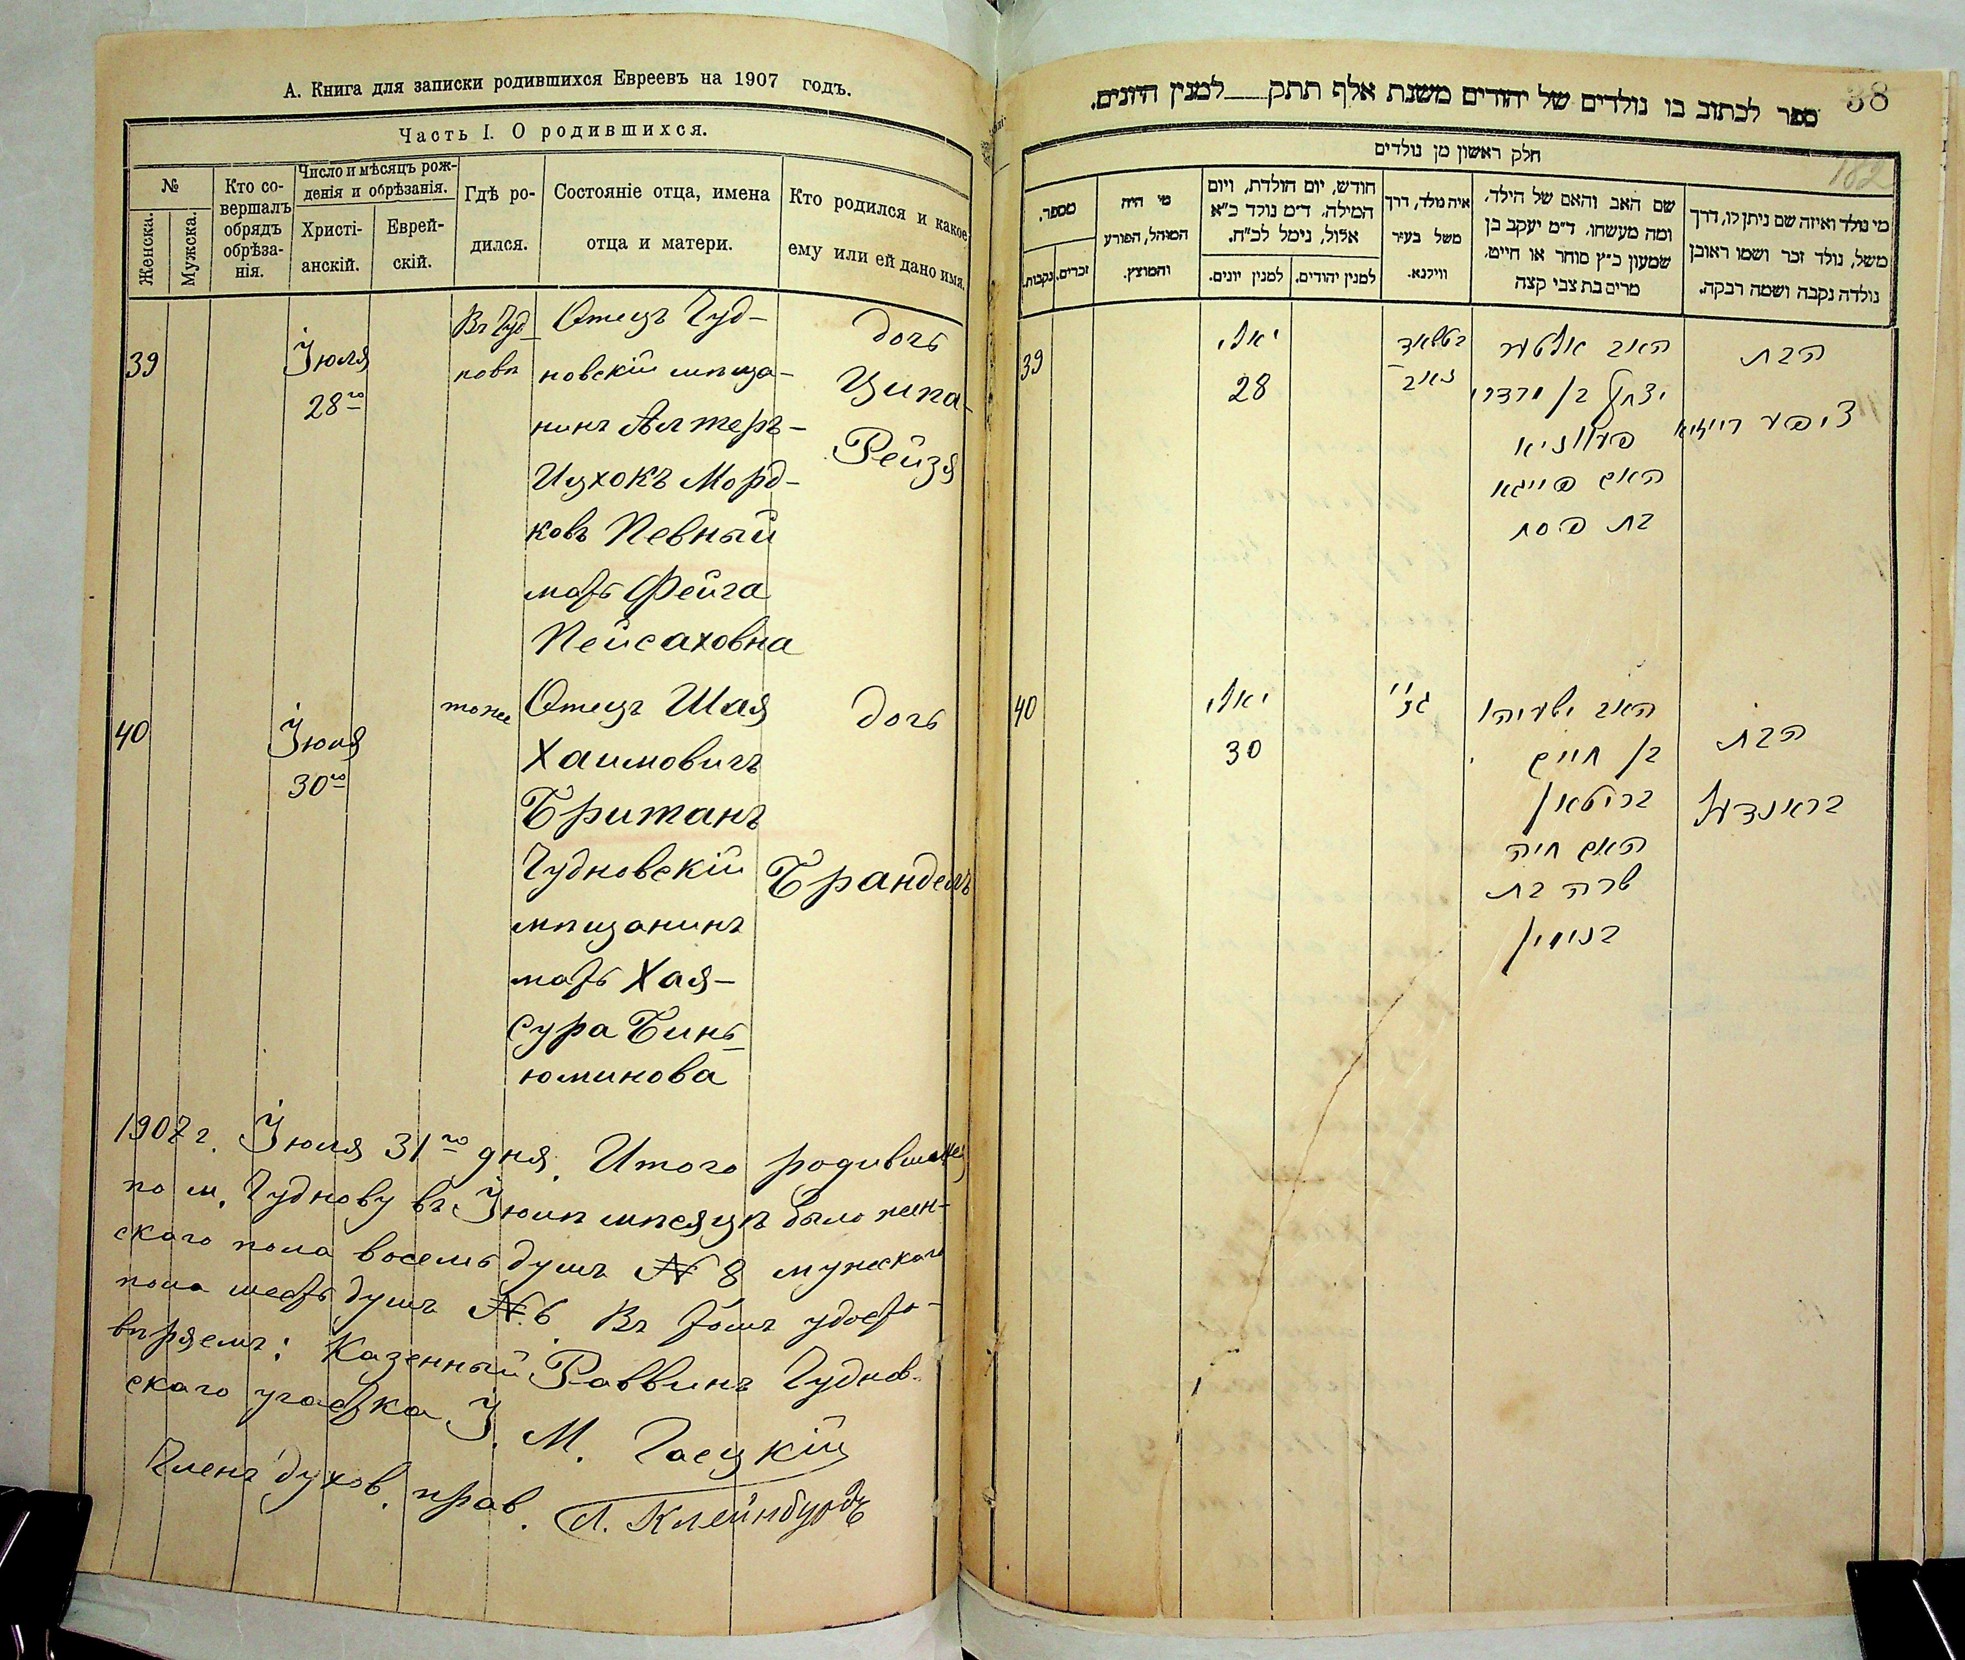 А. Книга для записки родившихся Евреевъ на 1907 годъ.
Часть I. О родившихся.
№
Женска.
Мужска.
Кто со-
вершалъ
обрядъ
обрѣза-
нія.
Число и мѣсяцъ рож-
денія и обрѣзанія.
Христі-
анскій.
Еврей-
скій.
Гдѣ ро-
дился.
Состояніе отца, имена
отца и матери.
Кто родился и какое
ему или ей дано имя.
39
Іюля
28го
Въ Чуд-
новѣ
Отецъ Чуд-
новскій мѣща-
нинъ Алтеръ-
Ицхокъ Морд-
ковъ Певный
мать Фейга
Пейсаховна
дочь
Ципа-
Рейзя
40
Іюля
30го
тоже
Отецъ Шая
Хаимовичъ
Бритaнъ
Чудновскій
мѣщанинъ
мать Хая-
Сура Бинь-
юминова
дочь
Брандель
1907 г. Іюля 31го дня. Итого родившихся
по м. Чуднову въ Іюлѣ мѣсяцѣ было жен-
скаго пола восемь душъ № 8 мужескаго
пола шесть душъ № 6. Въ томъ удосто-
вѣряемъ: Казенный Раввинъ Чуднов-
скаго участка І. М. Гоецкій
Членъ духов. прав. Л. Клейнбурдъ
38
182
ספר לכתוב בו נולדים של יהודים משנת אלף תתק___למנין היונים.
חלק ראשון מן נולדים
מספר.
זכרים.
נקבות.
מי היה
המוהל, הפורע
והמוצץ.
חודש, יום הולדת, ויום
המילה. ד״מ נולד כ״א
אלול, נימל לכ״ח.
למנין יהודים.
למנין יונים.
איה נולד, דרך
משל בעיר
ווילנא.
שם האב והאם של הילד,
ומה מעשהו. ד״מ יעקב בן
שמעון כ״ץ סוחר או חייט,
מרים בת צבי קצה
מי נולד ואיזה שם ניתן לו, דרך
משל, נולד זכר ושמו ראובן
נולדה נקבה ושמה רבקה.
39
יאלי
28
בטשאד
נאב
האב אלטער
יצחק בן מרדכי
פעווניא
האם פייגא
בת פסח
הבת
ציפע רייזיא
40
יאלי
30
גנ״ל
האב ישעיהו
בן חיים
בריטאן
האם חיה
שרה בת
בנימין
הבת
בראנדעל